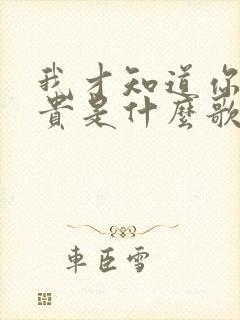 我才知道你
貴是什麼歌
車臣雪